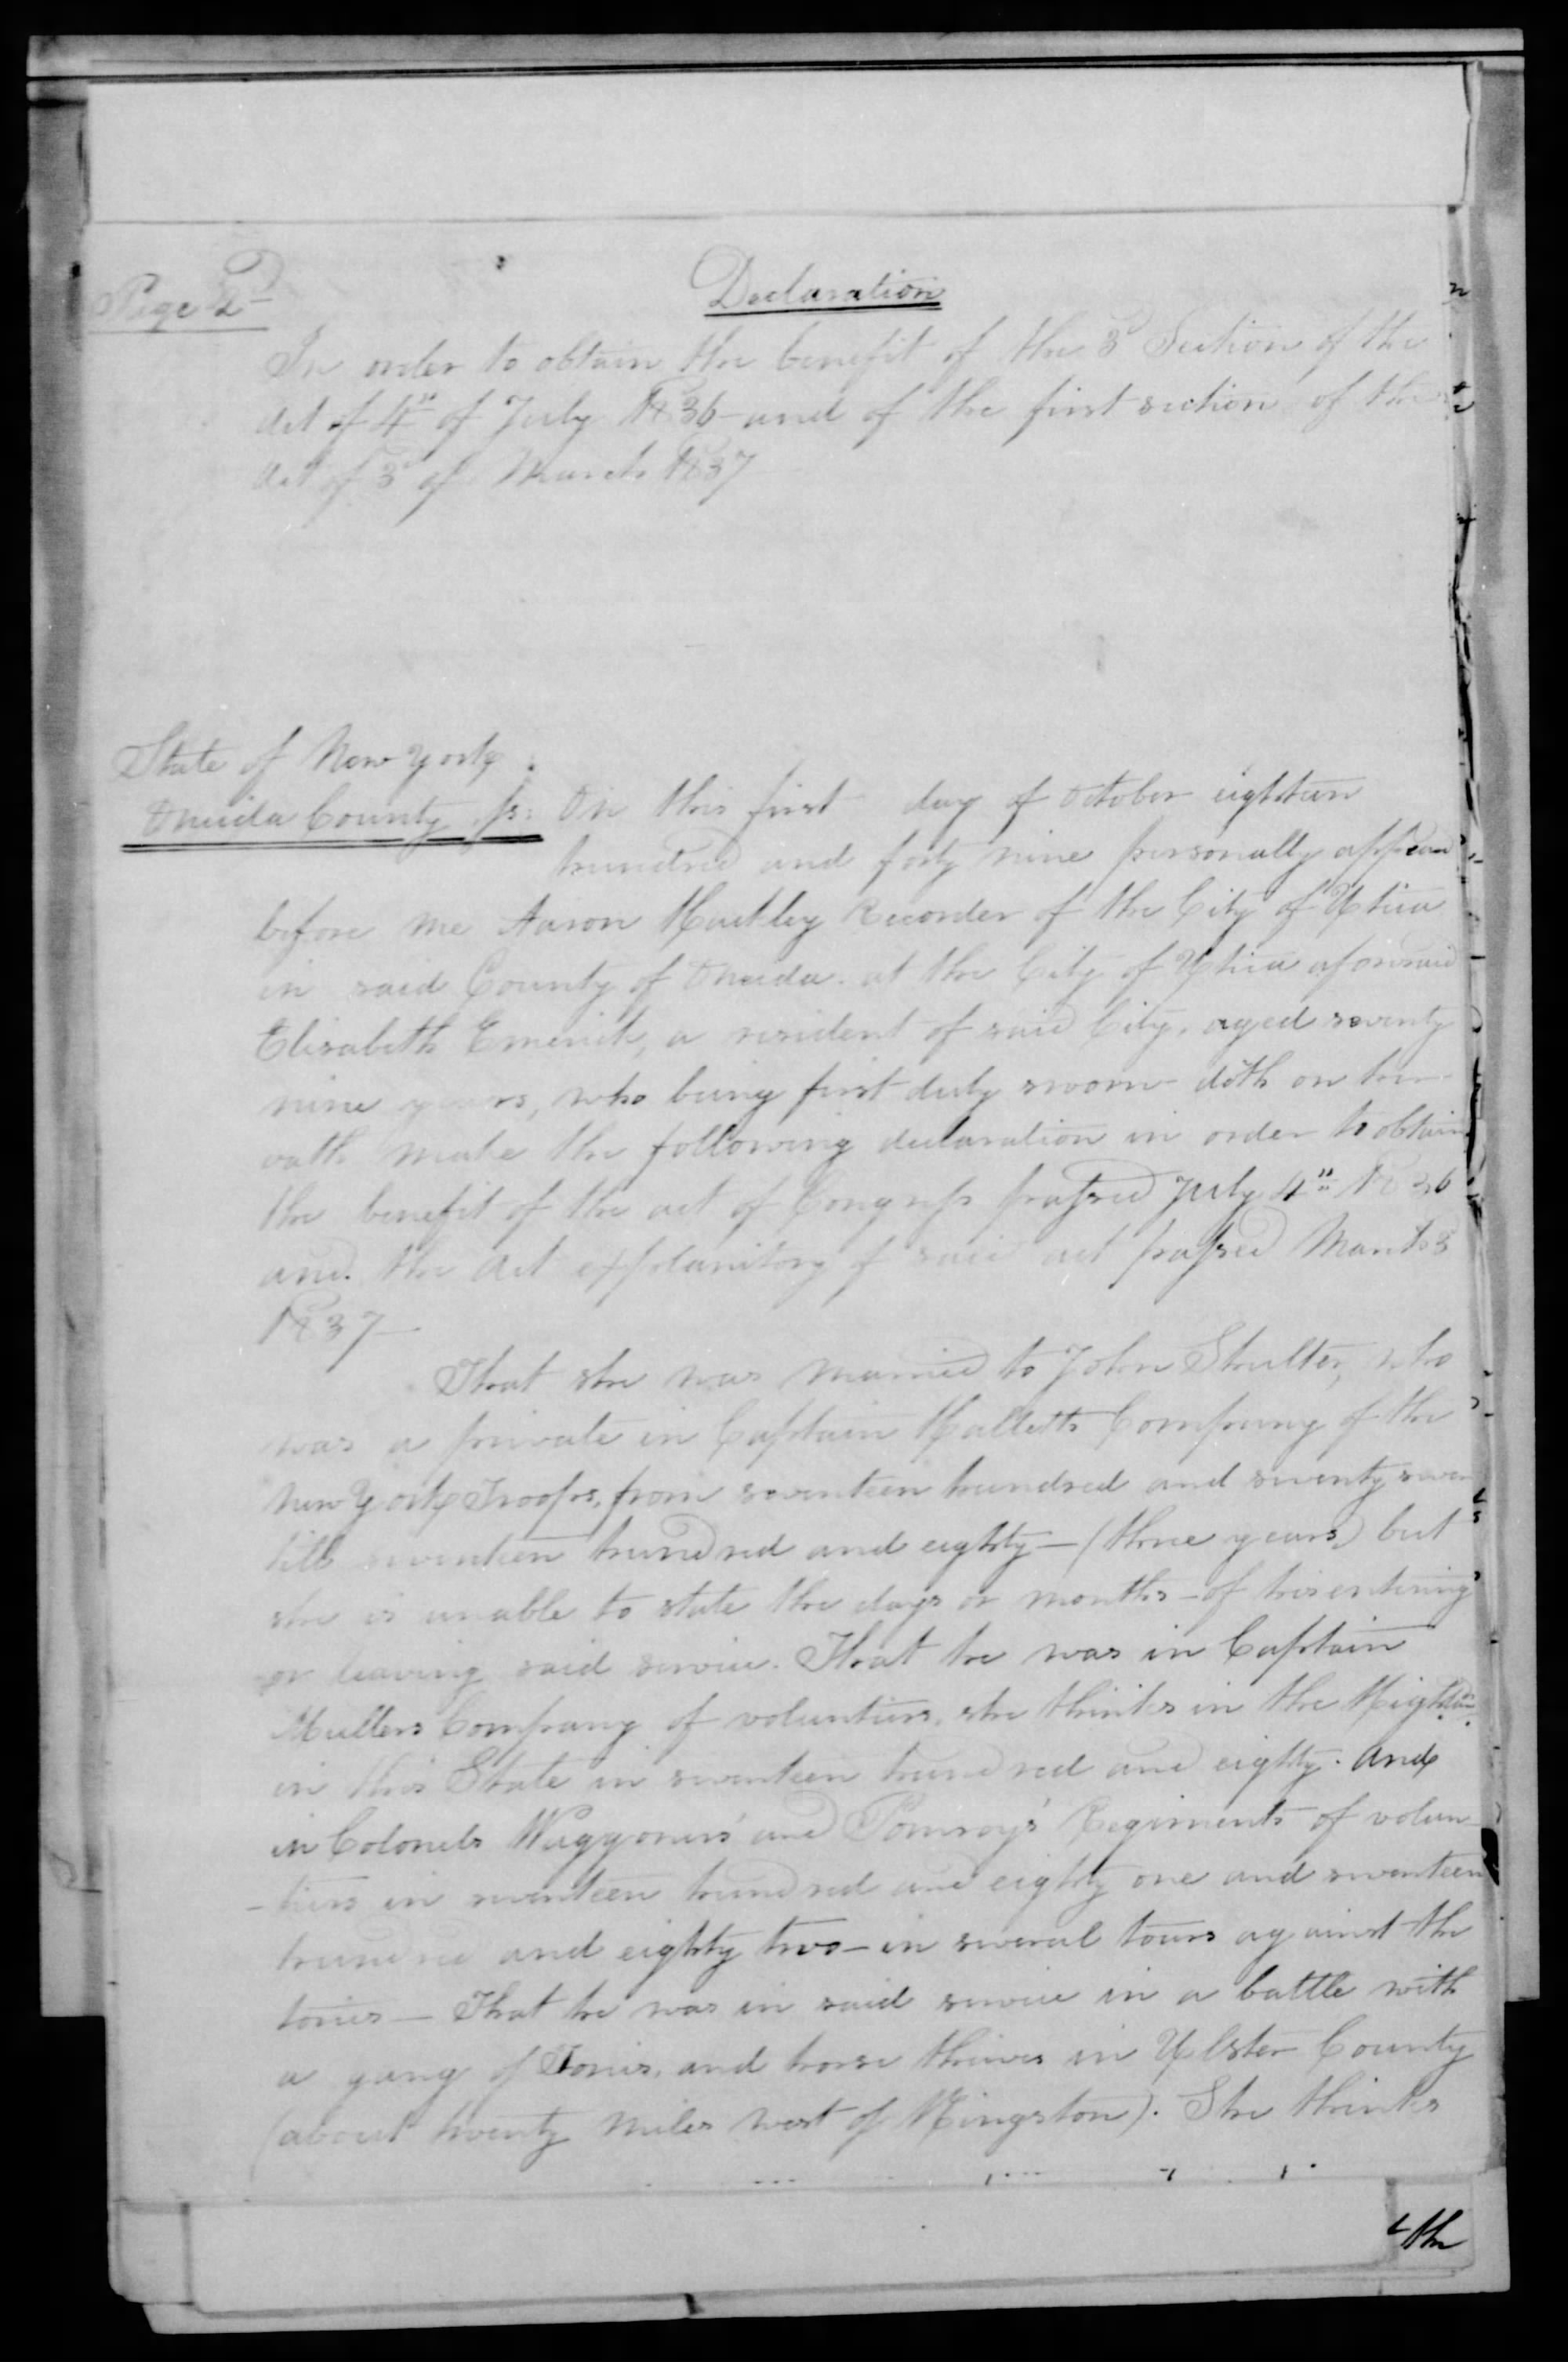 Declaration
Page 2d
In order to obtain the benefit of the 3d Section of the
Act of 4th of July 1836 and of the first section of the
Act of 3d of March 1837
State of New York
Oneida County ss: On this first day of October eighteen
hundred and forty nine personally appeared
before me Aaron Hackley Recorder of the City of Utica
in said County of Oneida. at the City of Utica aforesaid
Elisabeth Emerick, a resident of said City, aged seventy
nine years, who being first duly sworn doth on her
oath make the following declaration in order to obtain
the benefit of the act of Congress passed July 4th 1836
and the Act explanitory of said act passed March 3d
1837—
That she was married to John Shulter, who
was a private in Captain Halletts Company of the
New York Troops, from seventeen hundred and seventy seven
till seventeen hundred and eighty—(three years) but
she is unable to state the days or months—of his entering
or leaving said service. That he was in Captain
Mullers Company of voluntiers, she thinks in the
in this State in seventeen hundred and eighty. and
in Colonels Waggoners' and Pomroy's Regiments of volun
-tiers in seventeen hundred and eighty one and seventeen
hundred and eighty two—in several tours against the
tories—That he was in said service in a battle with
a gang of Tories, and horse thieves in Ulster County
(about twenty miles west of Kingston). She thinks
the